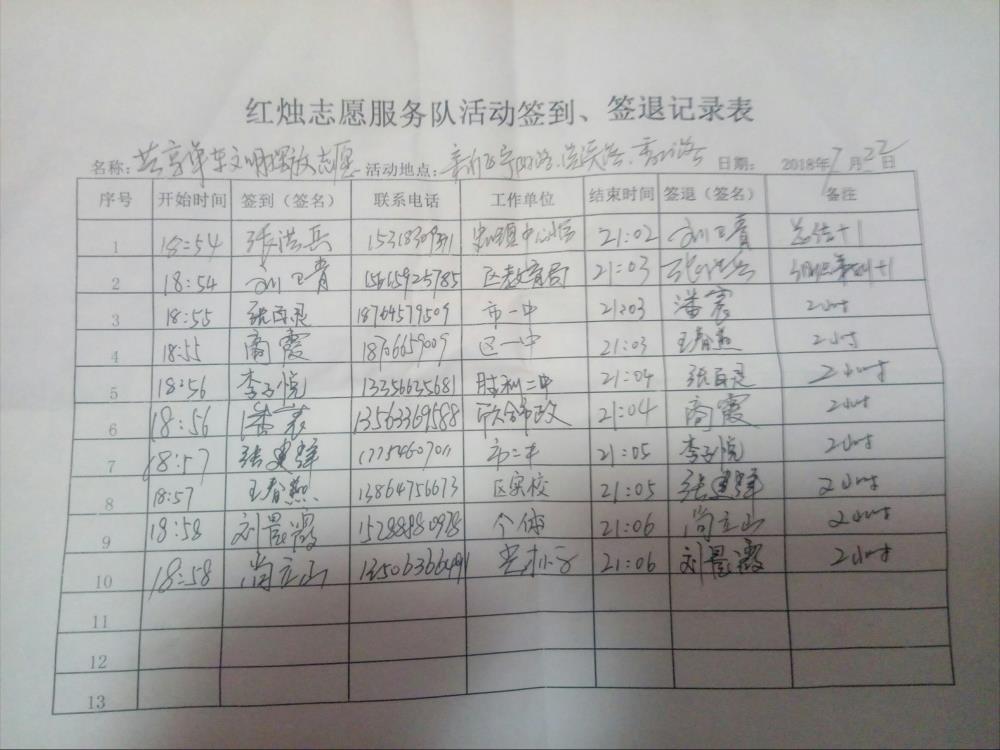 红烛志愿服务队活动签到、签退记录表
名称: 共享单车文明摆放志愿 活动地点: 日期: 2018年7月22日
序号 开始时间 签到（签名） 联系电话 工作单位 结束时间 签退（签名） 备注
1 18:54 张洪兵 21:02 刘卫青 总结+1
2 18:54 刘卫青 15665925785 区教育局 21:03 张洪兵 +1
3 18:55 张百灵 18764579509 市一中 21:03 潘霞 2小时
4 18:55 商霞 18706659009 区一中 21:03 王春燕 2小时
5 18:56 李子悦 13356635681 胜利二中 21:04 张百灵 2小时
6 18:56 潘霞 13563369588 21:04 商霞 2小时
7 18:57 张建锋 17754607011 市二中 21:05 李子悦 2小时
8 18:57 王春燕 13864756673 区实校 21:05 张建锋 2小时
9 18:58 刘昱薇 个体 21:06 尚立山 2小时
10 18:58 尚立山 21:06 刘昱薇 2小时
11
12
13